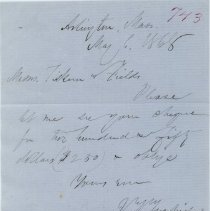 743
Arlington, Mass.
May 6, 1868
Messrs. Ticknor & Fields
Please
let me have your cheque
for two hundred & fifty
dollars ($250) & oblige
Yours ever